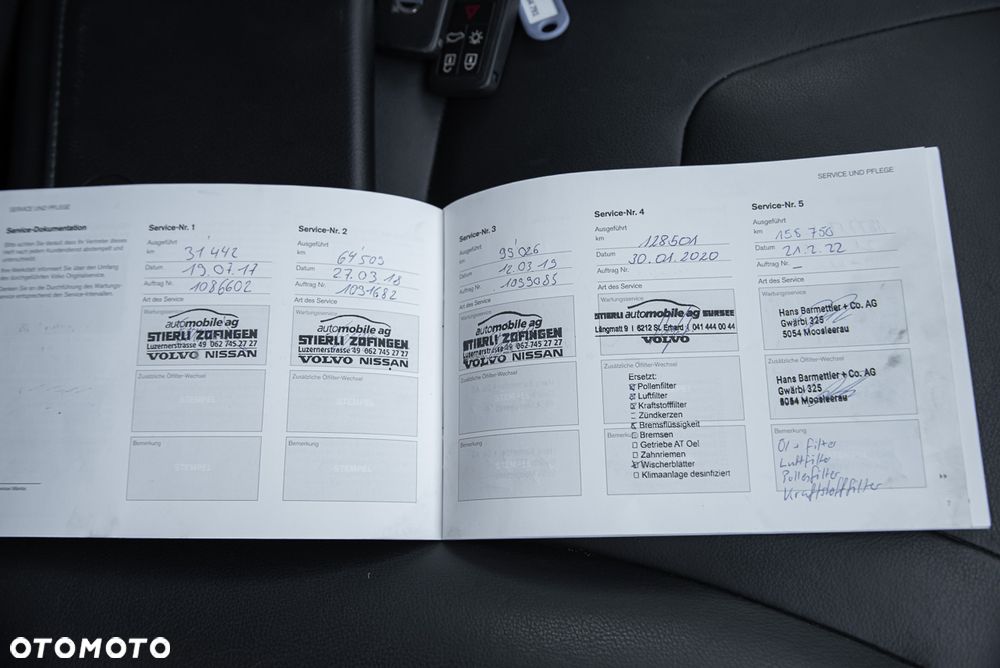 SERVICE UND PFLEGE
Service-Dokumentation
Service-Nr. 1
Ausgeführt
km 31'442
Datum 19.07.17
Auftrag Nr. 1086602
Art des Service
Wartungsservice
automobile ag
STIERLI ZOFINGEN
Luzernerstrasse 49 062 745 27 27
VOLVO NISSAN
Zusätzliche Ölfilter-Wechsel
STEMPEL
Bemerkung
STEMPEL
Service-Nr. 2
Ausgeführt
km 64'509
Datum 27.03.18
Auftrag Nr. 1091682
Art des Service
Wartungsservice
automobile ag
STIERLI ZOFINGEN
Luzernerstrasse 49 062 745 27 27
VOLVO NISSAN
Zusätzliche Ölfilter-Wechsel
STEMPEL
Bemerkung
STEMPEL
Service-Nr. 3
Ausgeführt
km 95'026
Datum 12.03.19
Auftrag Nr. 1099085
Art des Service
Wartungsservice
automobile ag
STIERLI ZOFINGEN
Luzernerstrasse 49 062 745 27 27
VOLVO NISSAN
Zusätzliche Ölfilter-Wechsel
STEMPEL
Bemerkung
STEMPEL
SERVICE UND PFLEGE
Service-Nr. 4
Ausgeführt
km 128'501
Datum 30.01.2020
Auftrag Nr.
Art des Service
Wartungsservice
STIERLI automobile ag SURSEE
Längmatt 9 | 6212 St. Erhard | 041 444 00 44
VOLVO
Zusätzliche Ölfilter-Wechsel
Ersetzt:
Pollenfilter
Luftfilter
Kraftstofffilter
Zündkerzen
Bremsflüssigkeit
Bremsen
Getriebe AT Oel
Zahnriemen
Wischerblätter
Klimaanlage desinfiziert
Service-Nr. 5
Ausgeführt
km 158 750
Datum 21.2.22
Auftrag Nr. –
Art des Service
Wartungsservice
Hans Barmettler + Co. AG
Gwärbi 325
5054 Moosleerau
Zusätzliche Ölfilter-Wechsel
Hans Barmettler + Co. AG
Gwärbi 325
5054 Moosleerau
Bemerkung
Öl- filter
Luftfilter
Pollenfilter
Kraftstofffilter
7
OTOMOTO